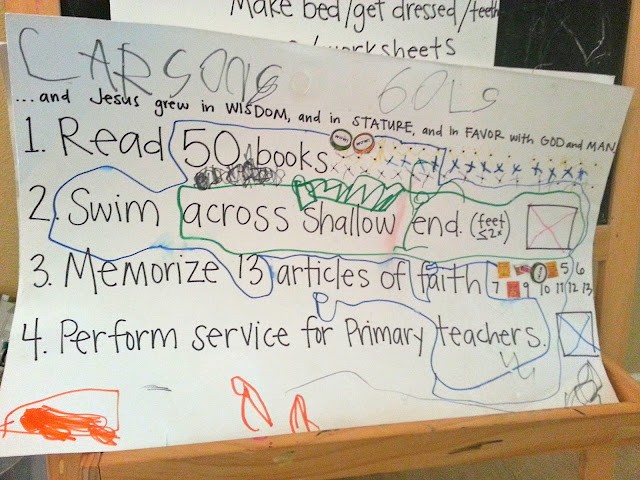 Make bed/get dressed/teeth
worksheets
CARSONS GOLS
...and Jesus grew in WISDOM, and in STATURE, and in FAVOR with GOD and MAN
1. Read 50 books
2. Swim across shallow end. (feet ≤2x)
3. Memorize 13 articles of faith 5 6
7 9 10 11 12 13
4. Perform service for Primary teachers.